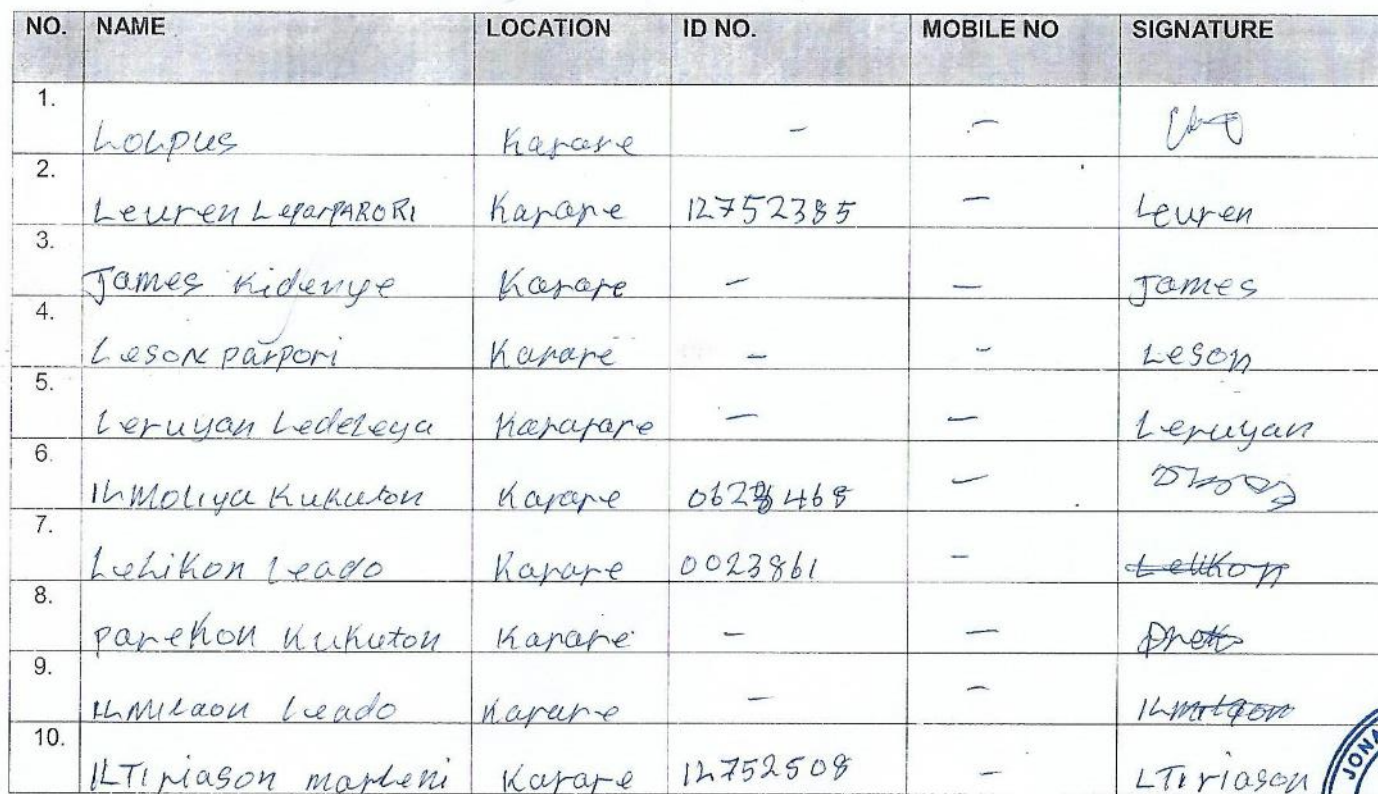 NO. NAME LOCATION ID NO. MOBILE NO SIGNATURE
1. LOLPUS Karare - -
2. Leuren LeparPARORI Karare 12752385 - Leuren
3. James Kidenye Karare - - James
4. Leson parpori Karare - - Leson
5. Leruyan Ledeleya Kararare - - Leruyan
6. ILMOLIYA Kukuton Karare -
7. Lelikon Leado Karare 0023861 - Lelikon
8. parekon Kukuton Karare - -
9. ILMILaon Leado Karare - - ILmilaon
10. ILTIriason marleni Karare 12752508 - LTIriason
JONA